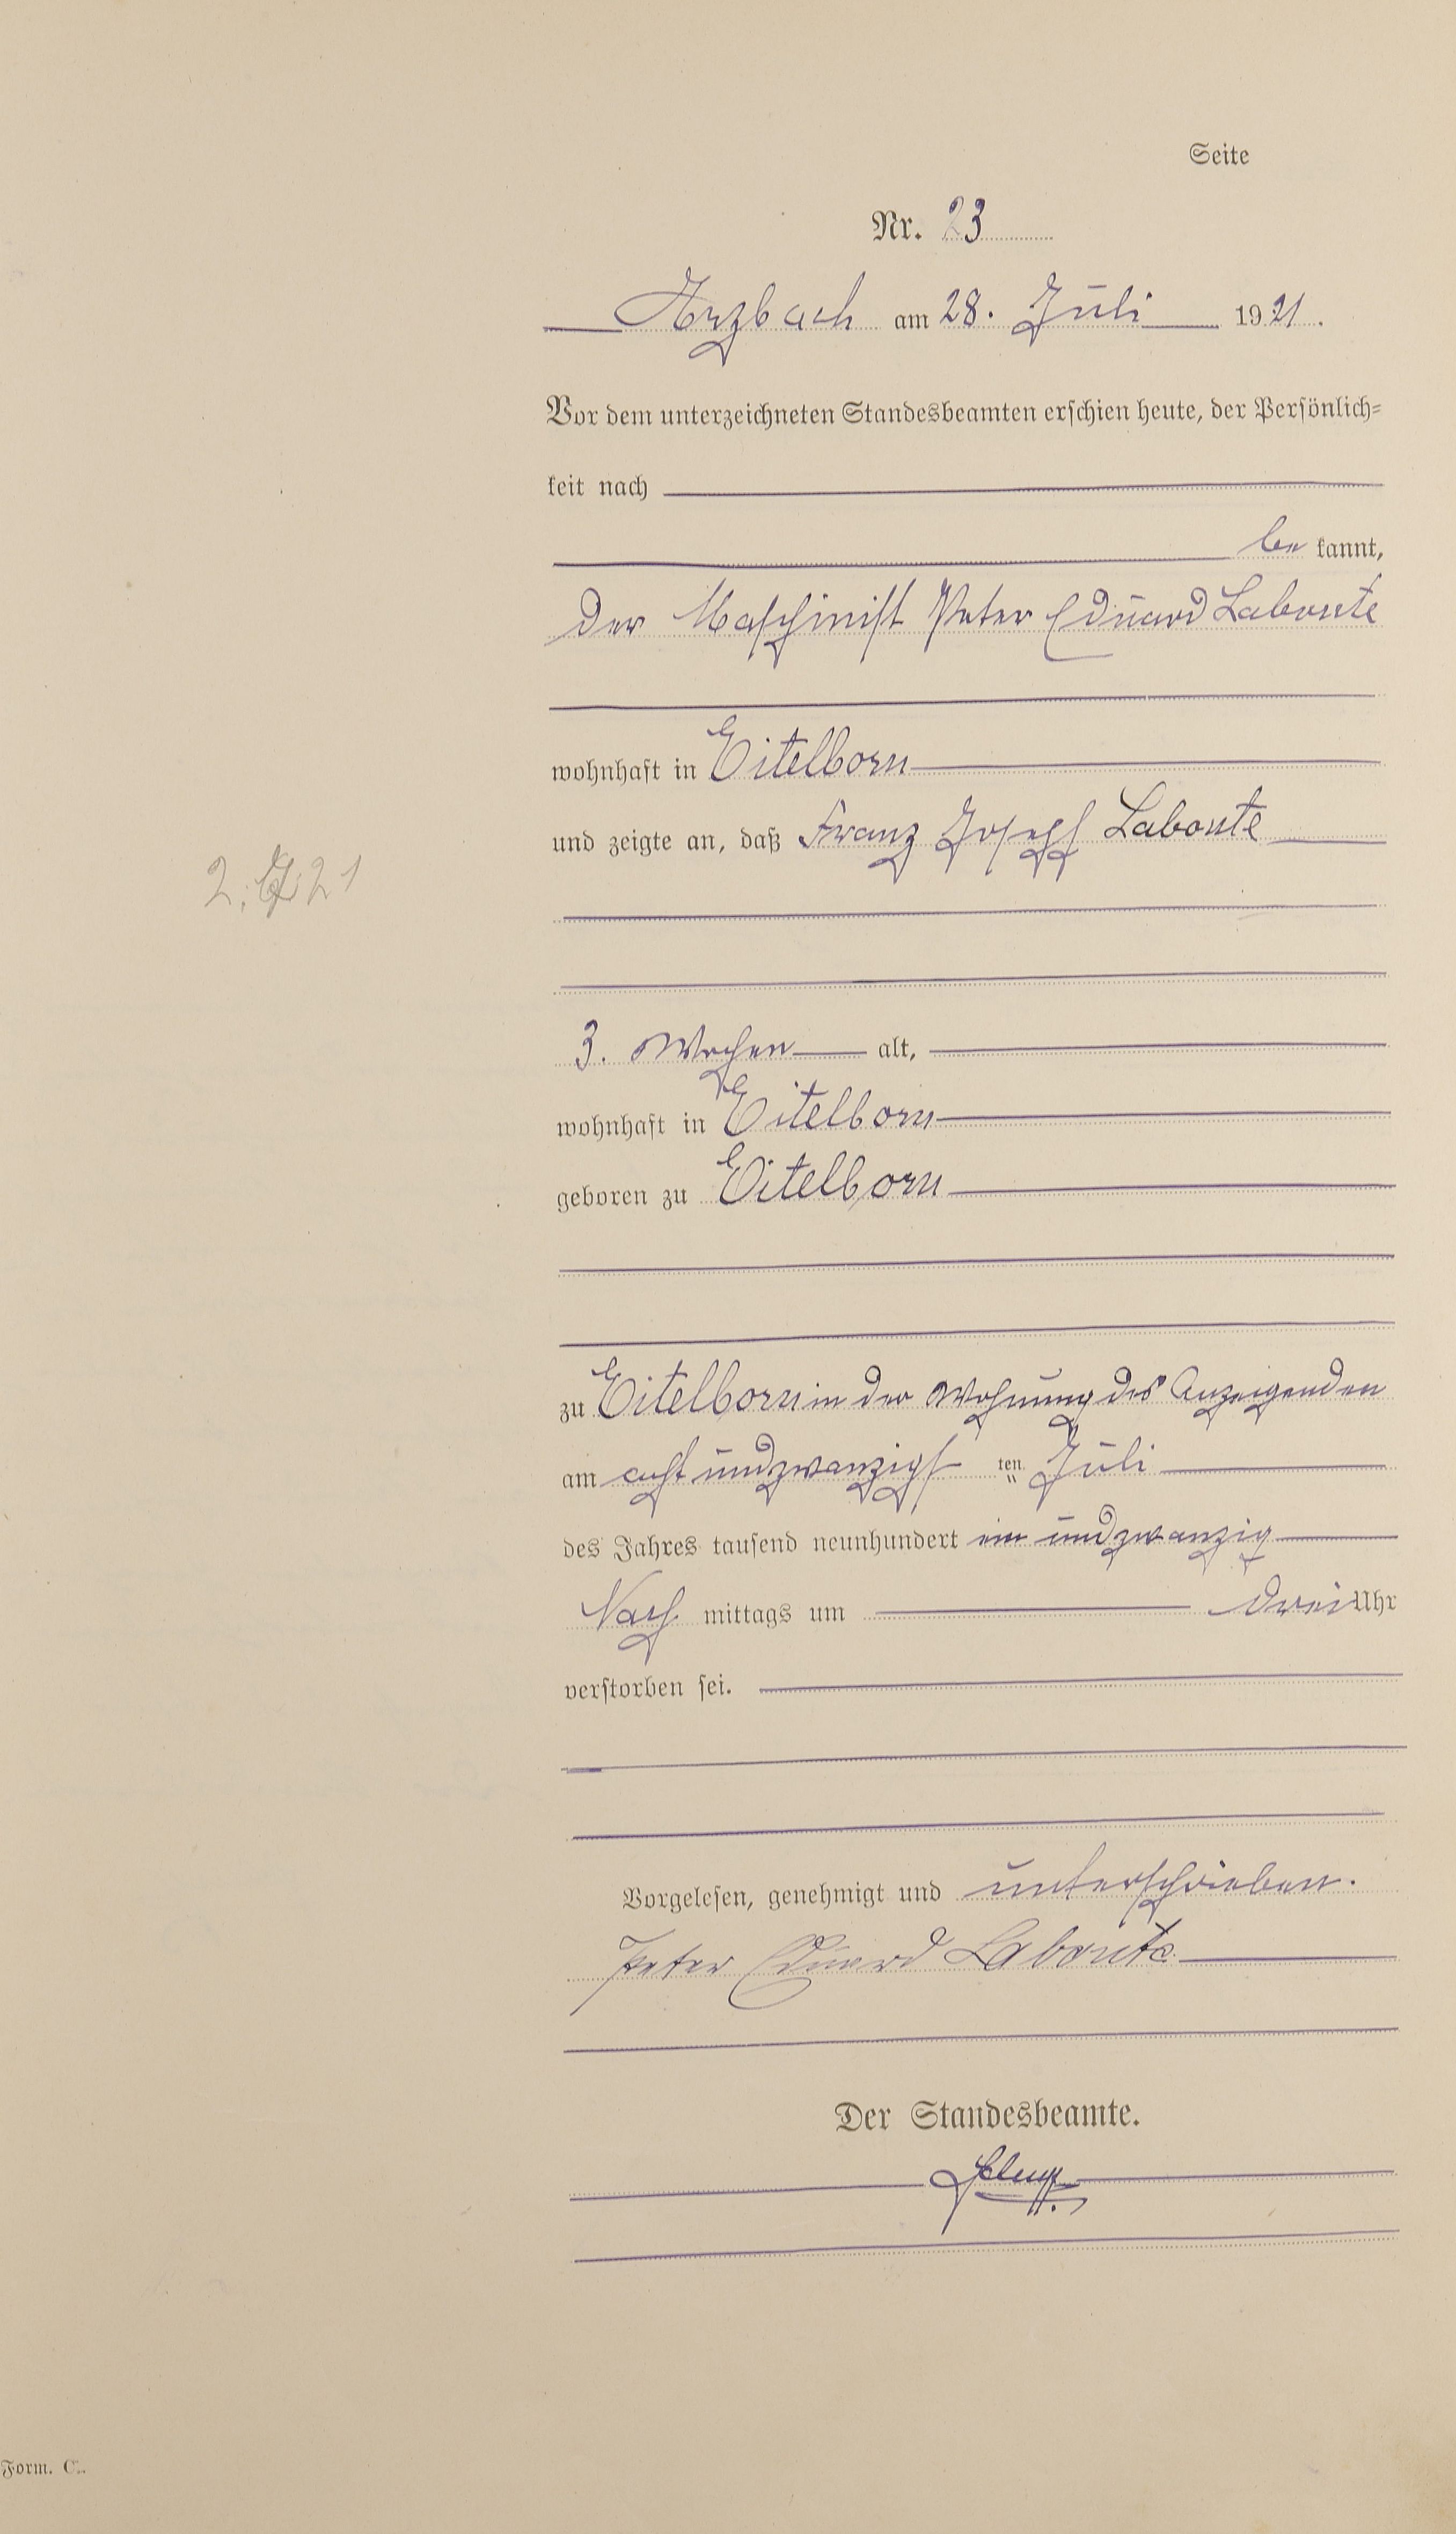 Seite
Nr. 23
Arzbach am 28. Juli 1921.
Vor dem unterzeichneten Standesbeamten erschien heute, der Persönlich-
keit nach
be kannt,
der Maschinist Peter Eduard Labonte
wohnhaft in Eitelborn
und zeigte an, daß Franz Joseph Labonte
3. Wochen alt,
wohnhaft in Eitelborn
geboren zu Eitelborn
zu Eitelborn in der Wohnung des Anzeigenden
am acht undzwanzigs ten Juli
des Jahres tausend neunhundert ein undzwanzig
Nach mittags um drei Uhr
verstorben sei.
Vorgelesen, genehmigt und unterschrieben.
Peter Eduard Labonte
Der Standesbeamte.
Form. C.